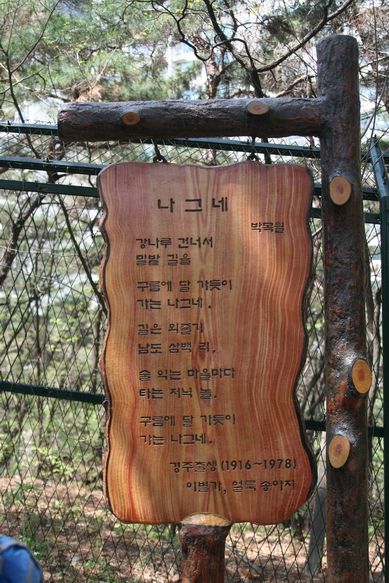 나그네
박목월
강나루 건너서
밀밭 길을
구름에 달 가듯이
가는 나그네.
길은 외줄기
남도 삼백 리.
술 익는 마을마다
타는 저녁 놀.
구름에 달 가듯이
가는 나그네.
경주출생(1916~1978)
이별가, 얼룩 송아지